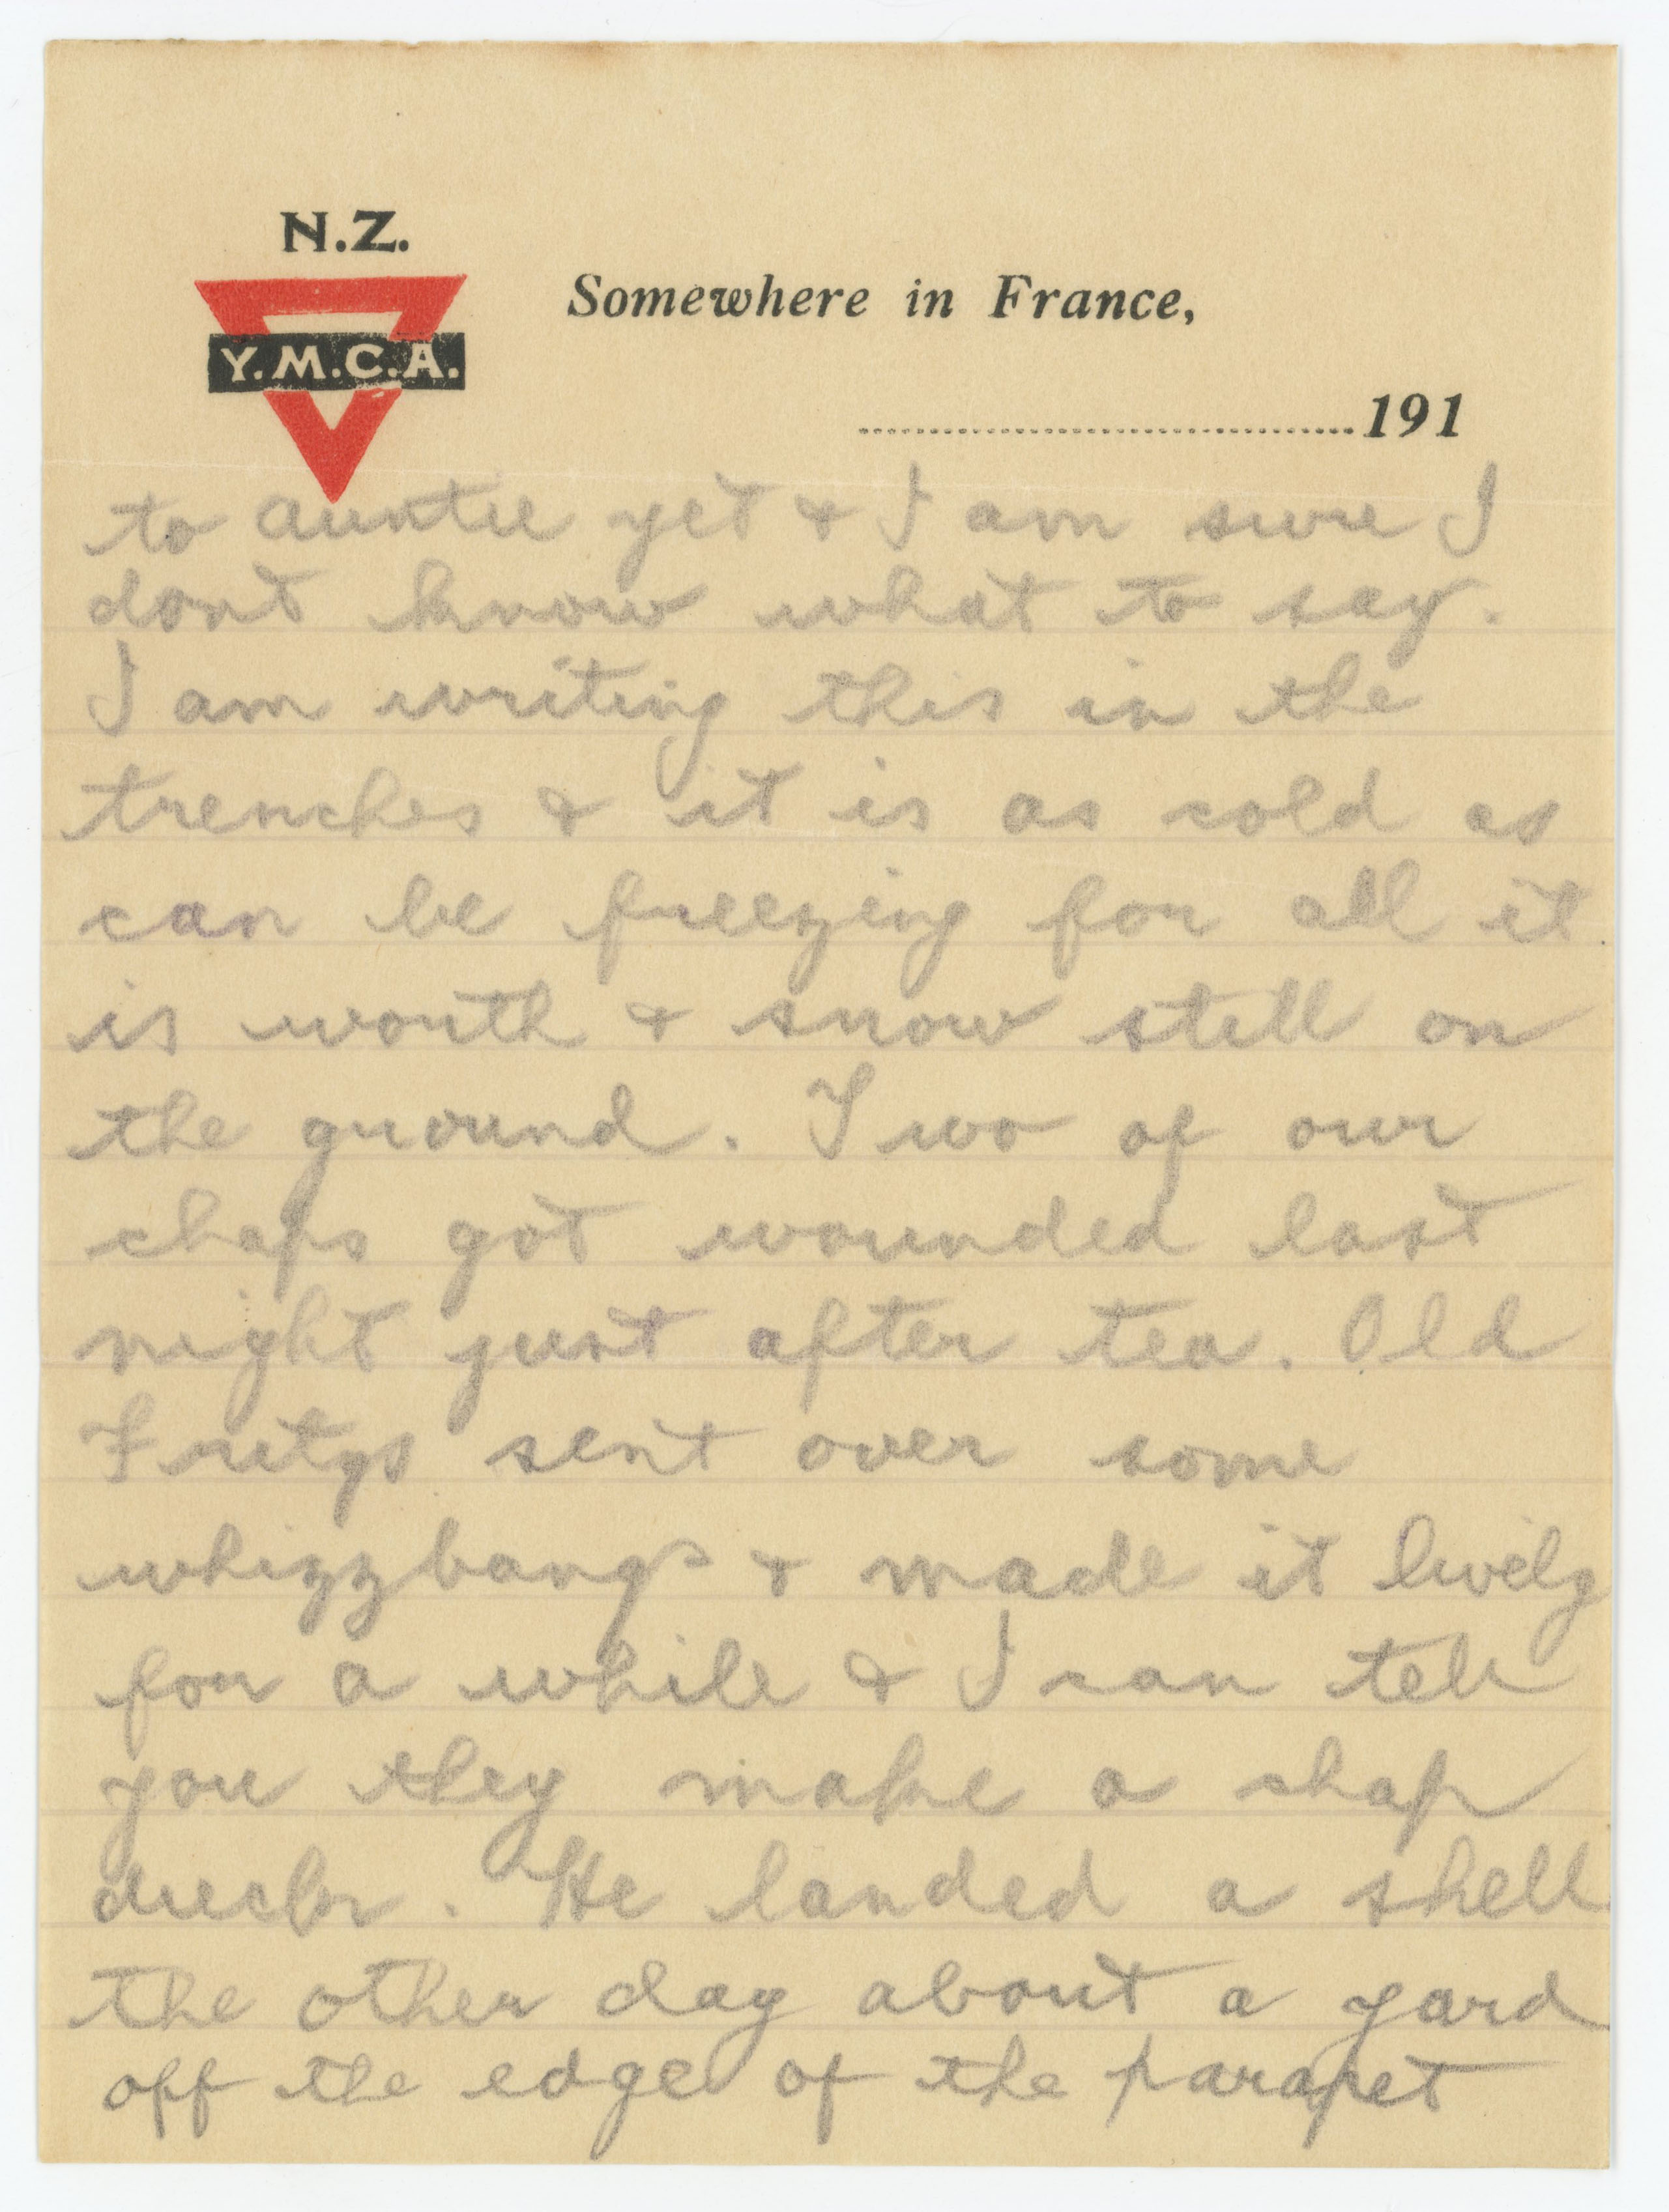 N.Z.
Y.M.C.A.
Somewhere in France,
..................................191
to auntie yet & I am sure I
dont know what to say.
I am writing this in the
trenches & it is as cold as
can be freezing for all it
is worth & snow still on
the ground. Two of our
chaps got wounded last
night just after tea. Old
Fritzs sent over some
whizzbangs & made it lively
for a while & I can tell
you they make a chap
duck. He landed a shell
the other day about a yard
off the edge of the parapet